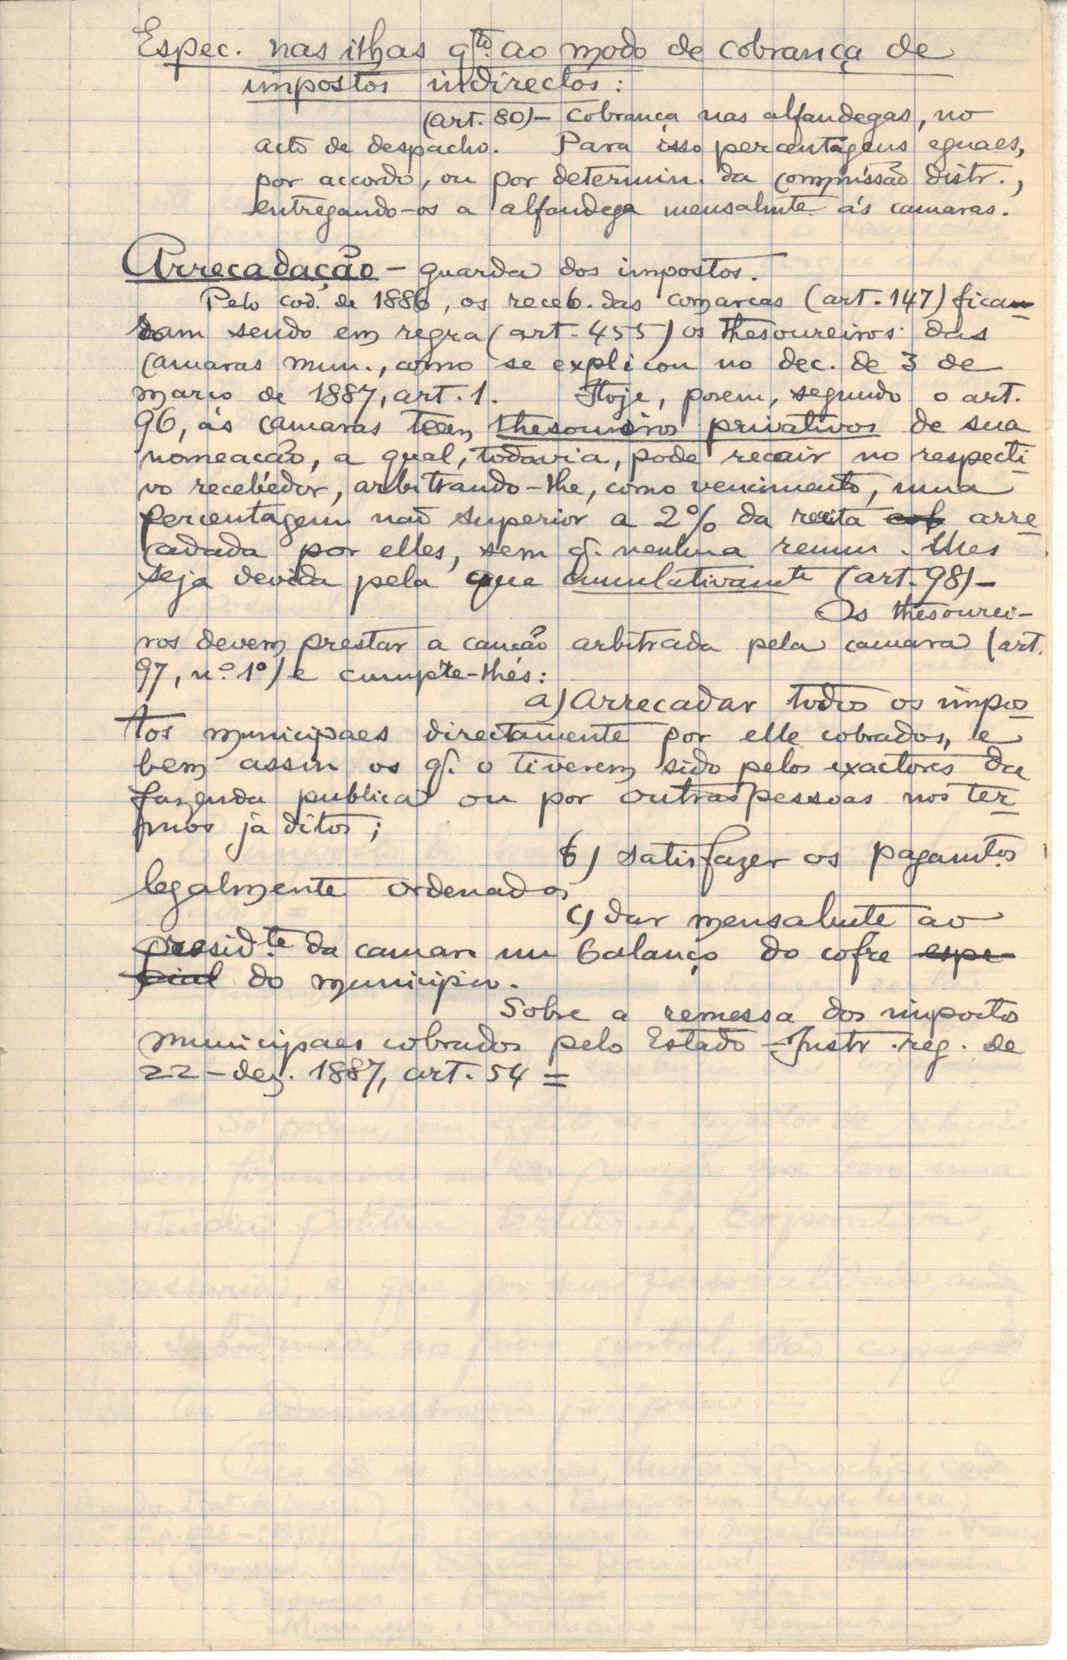 Espec. nas ilhas qto ao modo de cobrança de
impostos indirectos:
(art. 80) – Cobrança nas alfandegas, no
acto de despacho. Para isso percentagens eguaes,
por accordo, ou por determin. da commissão distr.,
entregando-os a alfandega mensalmte ás camaras.
Arrecadação – guarda dos impostos.
Pelo cod. de 1886, os receb. das comarcas (art. 147) fica
vam sendo em regra (art. 455) os thesoureiros das
camaras mun., como se explicou no dec. de 3 de
março de 1887, art. 1. Hoje, porem, segundo o art.
96, as camaras teem thesoureiros privativos de sua
nomeação, a qual, todavia, pode recair no respecti
vo recebedor, arbitrando-lhe, como vencimento, uma
percentagem não superior a 2% da receita cob arre
cadada por elles, sem q. nenhuma remun. lhes
seja devida pela que cumulativamte (art. 98) –
Os thesourei–
ros devem prestar a caução arbitrada pela camara (art.
97, n.º 1º) e cumpre-lhes:
a) Arrecadar todos os impos
tos municipaes directamente por elle cobrados, e
bem assim os q. o tiverem sido pelos exactores da
fazenda publica ou por outras pessoas nos ter
mos já ditos;
b) satisfazer os pagamtos
legalmente ordenados
c) dar mensalmte ao
presidte da camara um balanço do cofre espe
cial do municipio.
Sobre a remessa dos impostos
municipaes cobrados pelo Estado – Instr. reg. de
22 – dez. 1887, art. 54 =